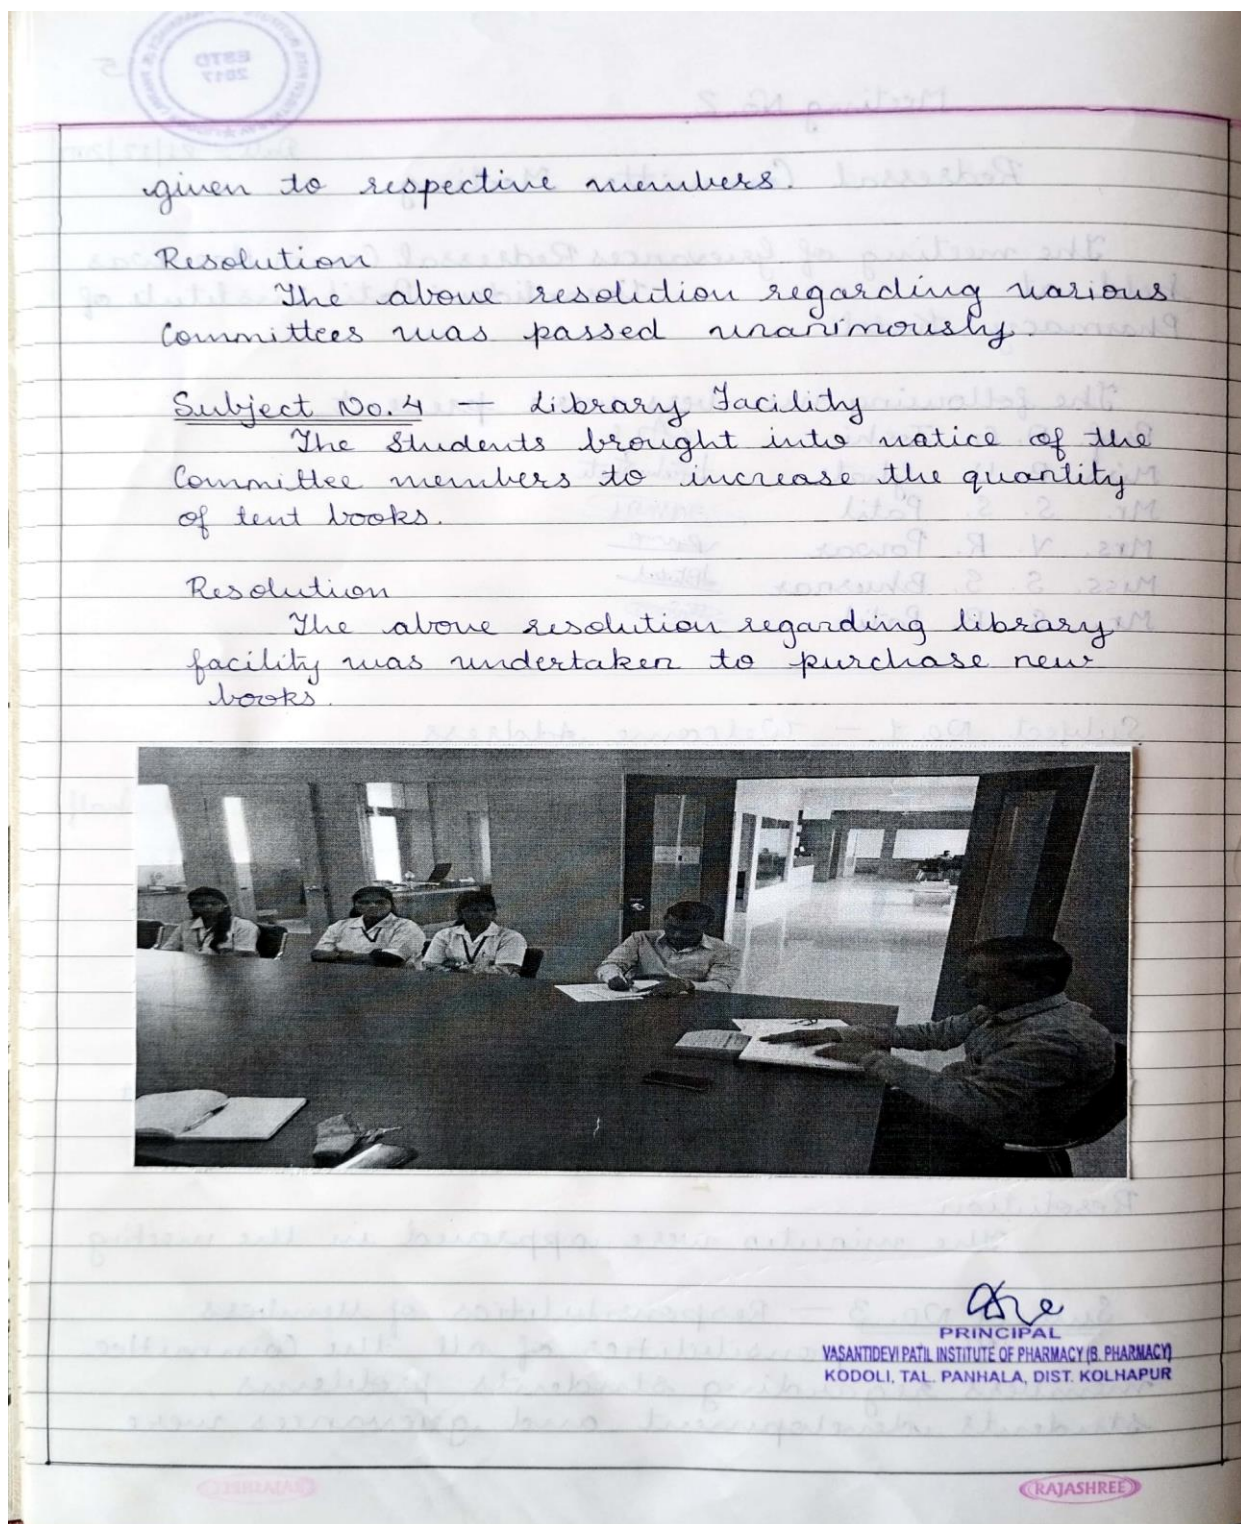 given to respective members.
Resolution
The above resolution regarding various
Committees was passed unanimously.
Subject No. 4 — Library Facility
The Students brought into notice of the
Committee members to increase the quantity
of tent books.
Resolution
The above resolution regarding library
facility was undertaken to purchase new
books.
PRINCIPAL
VASANTIDEVI PATIL INSTITUTE OF PHARMACY (B. PHARMACY)
KODOLI, TAL. PANHALA, DIST. KOLHAPUR
RAJASHREE